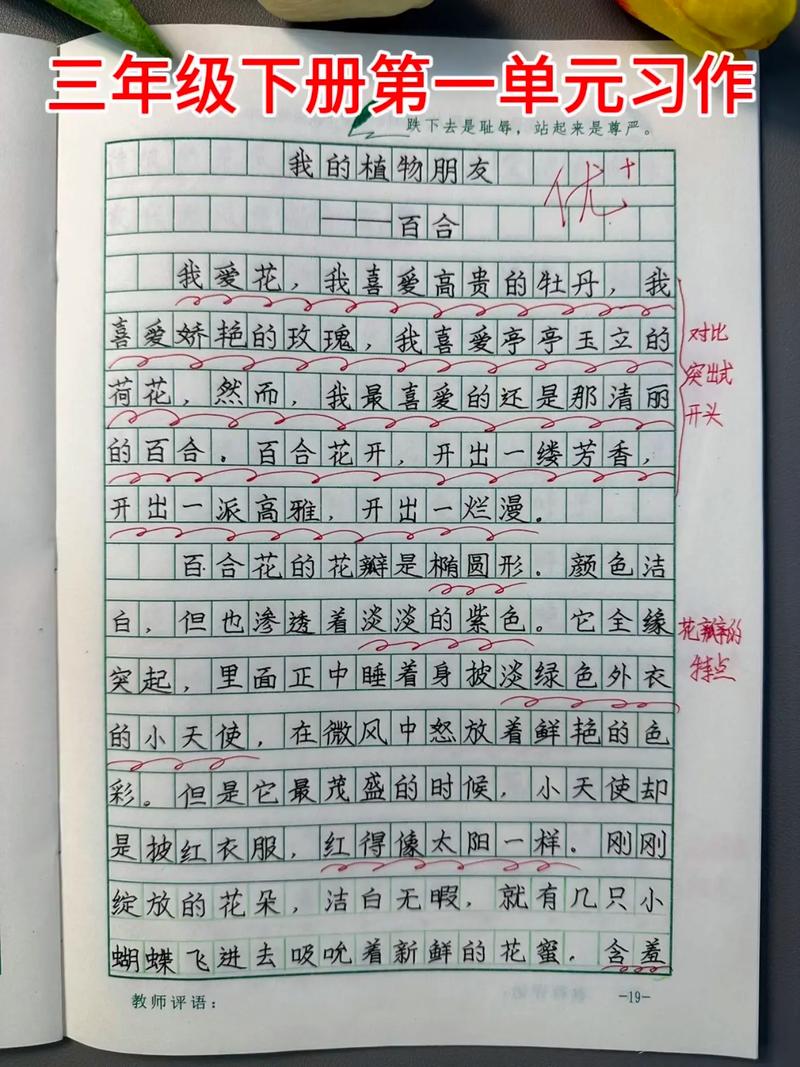 三年级下册第一单元习作
跌下去是耻辱，站起来是尊严。
我的植物朋友
优+
——百合
我爱花，我喜爱高贵的牡丹，我
喜爱娇艳的玫瑰，我喜爱亭亭玉立的
荷花，然而，我最喜爱的还是那清丽
的百合。百合花开，开出一缕芳香，
开出一派高雅，开出一烂漫。
对比
突出式
开头
百合花的花瓣是椭圆形。颜色洁
白，但也渗透着淡淡的紫色。它全缘
突起，里面正中睡着身披淡绿色外衣
的小天使，在微风中怒放着鲜艳的色
彩。但是它最茂盛的时候，小天使却
是披红衣服，红得像太阳一样。刚刚
绽放的花朵，洁白无暇，就有几只小
蝴蝶飞进去吸吮着新鲜的花蜜。含羞
花瓣的
特点
教师评语：
-19-